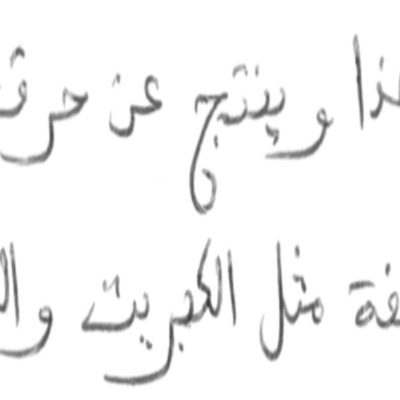 هذا وينتج عن حرق
مثل الكبريت و